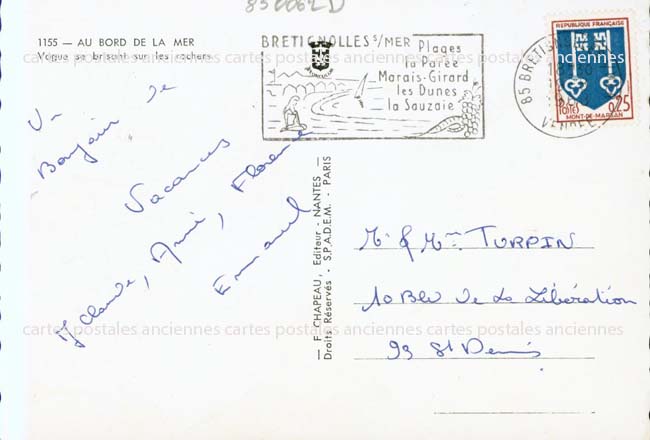 850062D
1155 — AU BORD DE LA MER
Vague se brisant sur les rochers
BRETIGNOLLES S/MER
Plages
la Parée
Marais-Girard
les Dunes
la Sauzaie
REPUBLIQUE FRANÇAISE
POSTES
0,25
MONT-DE-MARSAN
85 BRETIGNO
VENDEE
Un
Bonjour de
Vacances
M Claude, Annie, Florence
Emmanuel
— F. CHAPEAU, Editeur - NANTES —
Droits Réservés - S.P.A.D.E.M. - PARIS
Mr & Mme TURPIN
10 Blv de La Libération
93 St Denis
cartes postales anciennes cartes postales anciennes cartes postales anciennes